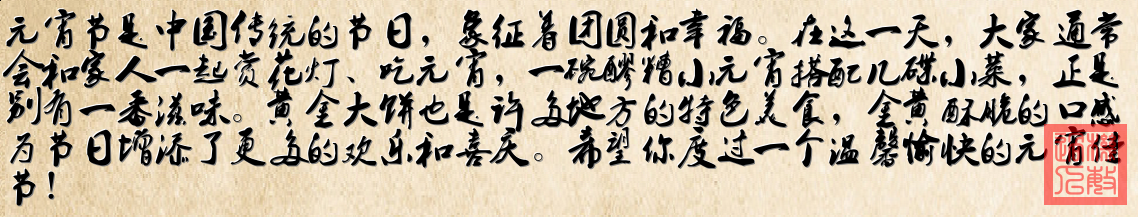 元宵节是中国传统的节日，象征着团圆和幸福。在这一天，大家通常
会和家人一起赏花灯、吃元宵，一碗醪糟小元宵搭配几碟小菜，正是
别有一番滋味。黄金大饼也是许多地方的特色美食，金黄酥脆的口感
为节日增添了更多的欢乐和喜庆。希望你度过一个温馨愉快的元宵佳
节！